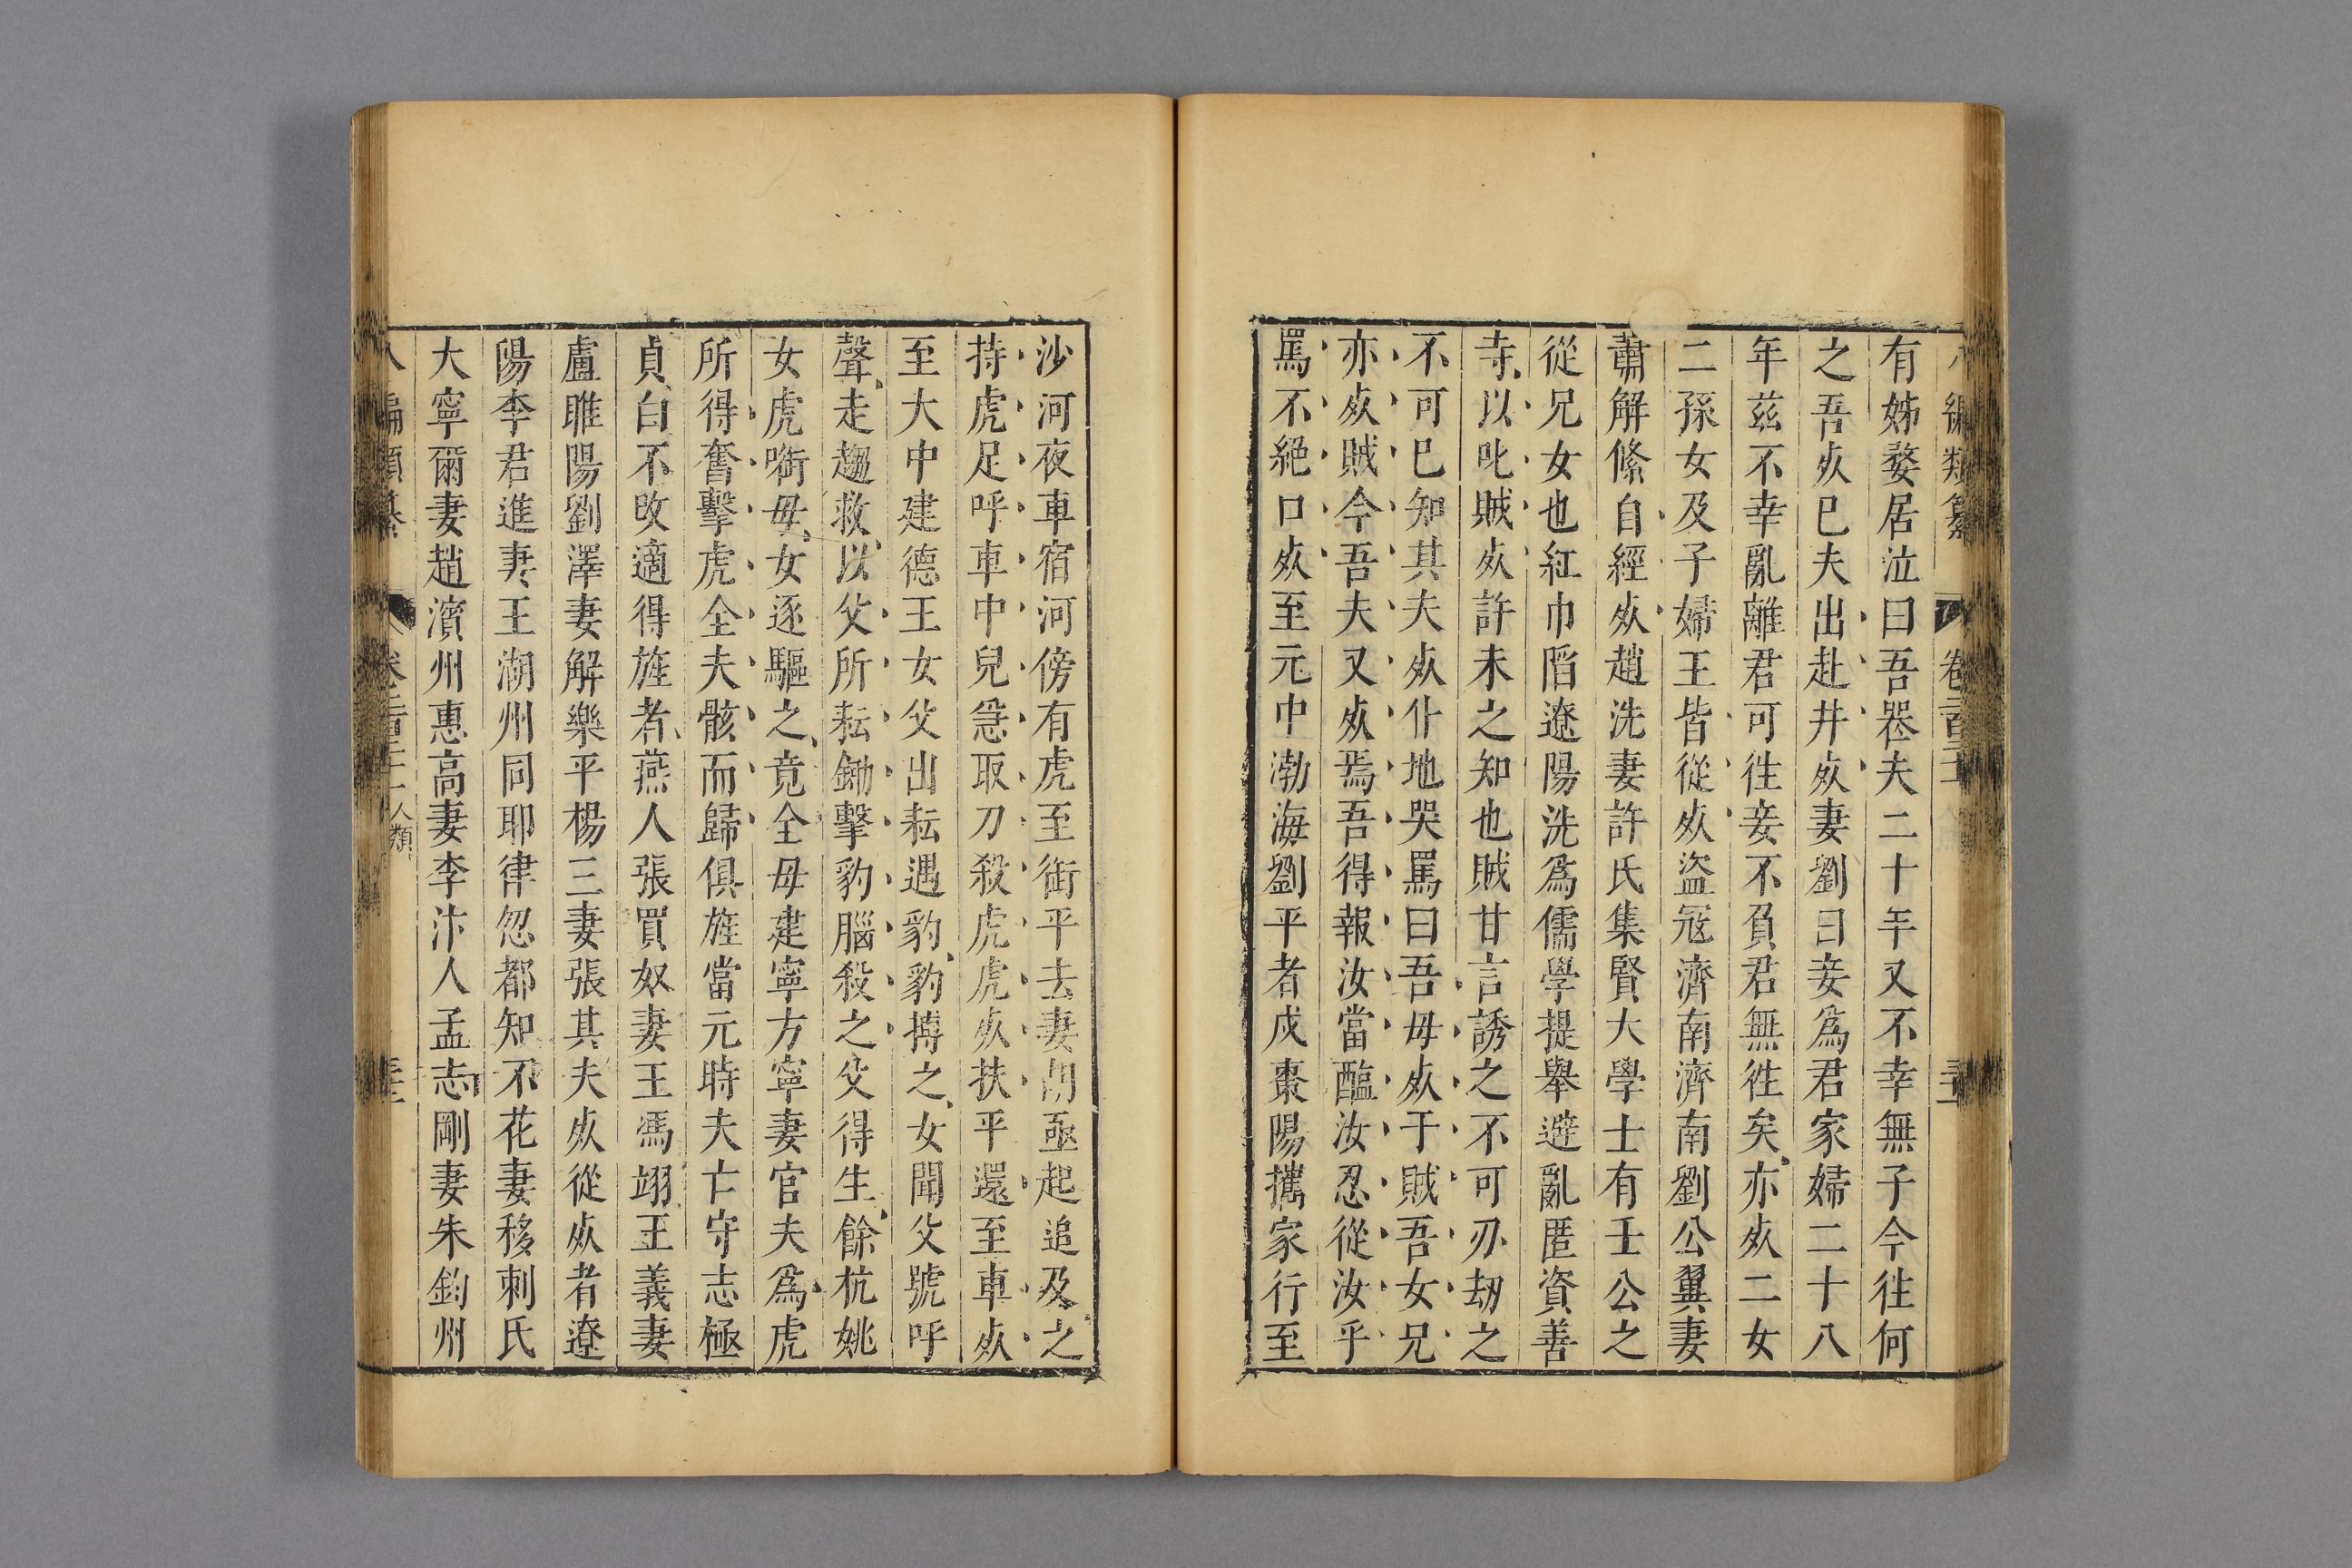 八編類纂
有姊婺居泣曰吾器夫二十年又不幸無子今徃何
之吾㱙巳夫出赴井㱙妻劉曰妾爲君家婦二十八
年茲不幸亂離君可徃妾不負君無徃矣亦㱙二女
二孫女及子婦王皆從㱙盗冦濟南濟南劉公翼妻
蕭解絛自經㱙趙洗妻許氏集賢大學士有壬公之
從兄女也紅巾䧟遼陽洗爲儒學提舉避亂匿資善
寺以叱賊㱙許未之知也賊甘言誘之不可刃刼之
不可巳知其夫㱙什地哭罵曰吾母㱙于賊吾女兄
亦㱙賊今吾夫又㱙焉吾得報汝當醢汝忍從汝乎
罵不絕口㱙至元中渤海劉平者戍棗陽攜家行至
沙河夜車宿河傍有虎至銜平去妻胡亟起追及之
持虎足呼車中兒急取刀殺虎虎㱙扶平還至車㱙
至大中建德王女父出耘遇豹豹搏之女聞父號呼
聲走趨救以父所耘鋤擊豹腦殺之父得生餘杭姚
女虎㗸母女逐驅之竟全母建寧方寧妻官夫爲虎
所得奮擊虎全夫骸而歸俱旌當元時夫亡守志極
貞白不改適得旌者燕人張買奴妻王馮翊王義妻
盧睢陽劉澤妻解樂平楊三妻張其夫㱙從㱙者遼
陽李君進妻王潮州同耶律忽都知不花妻移剌氏
大寧爾妻趙濱州惠高妻李汴人孟志剛妻朱鈞州
人類